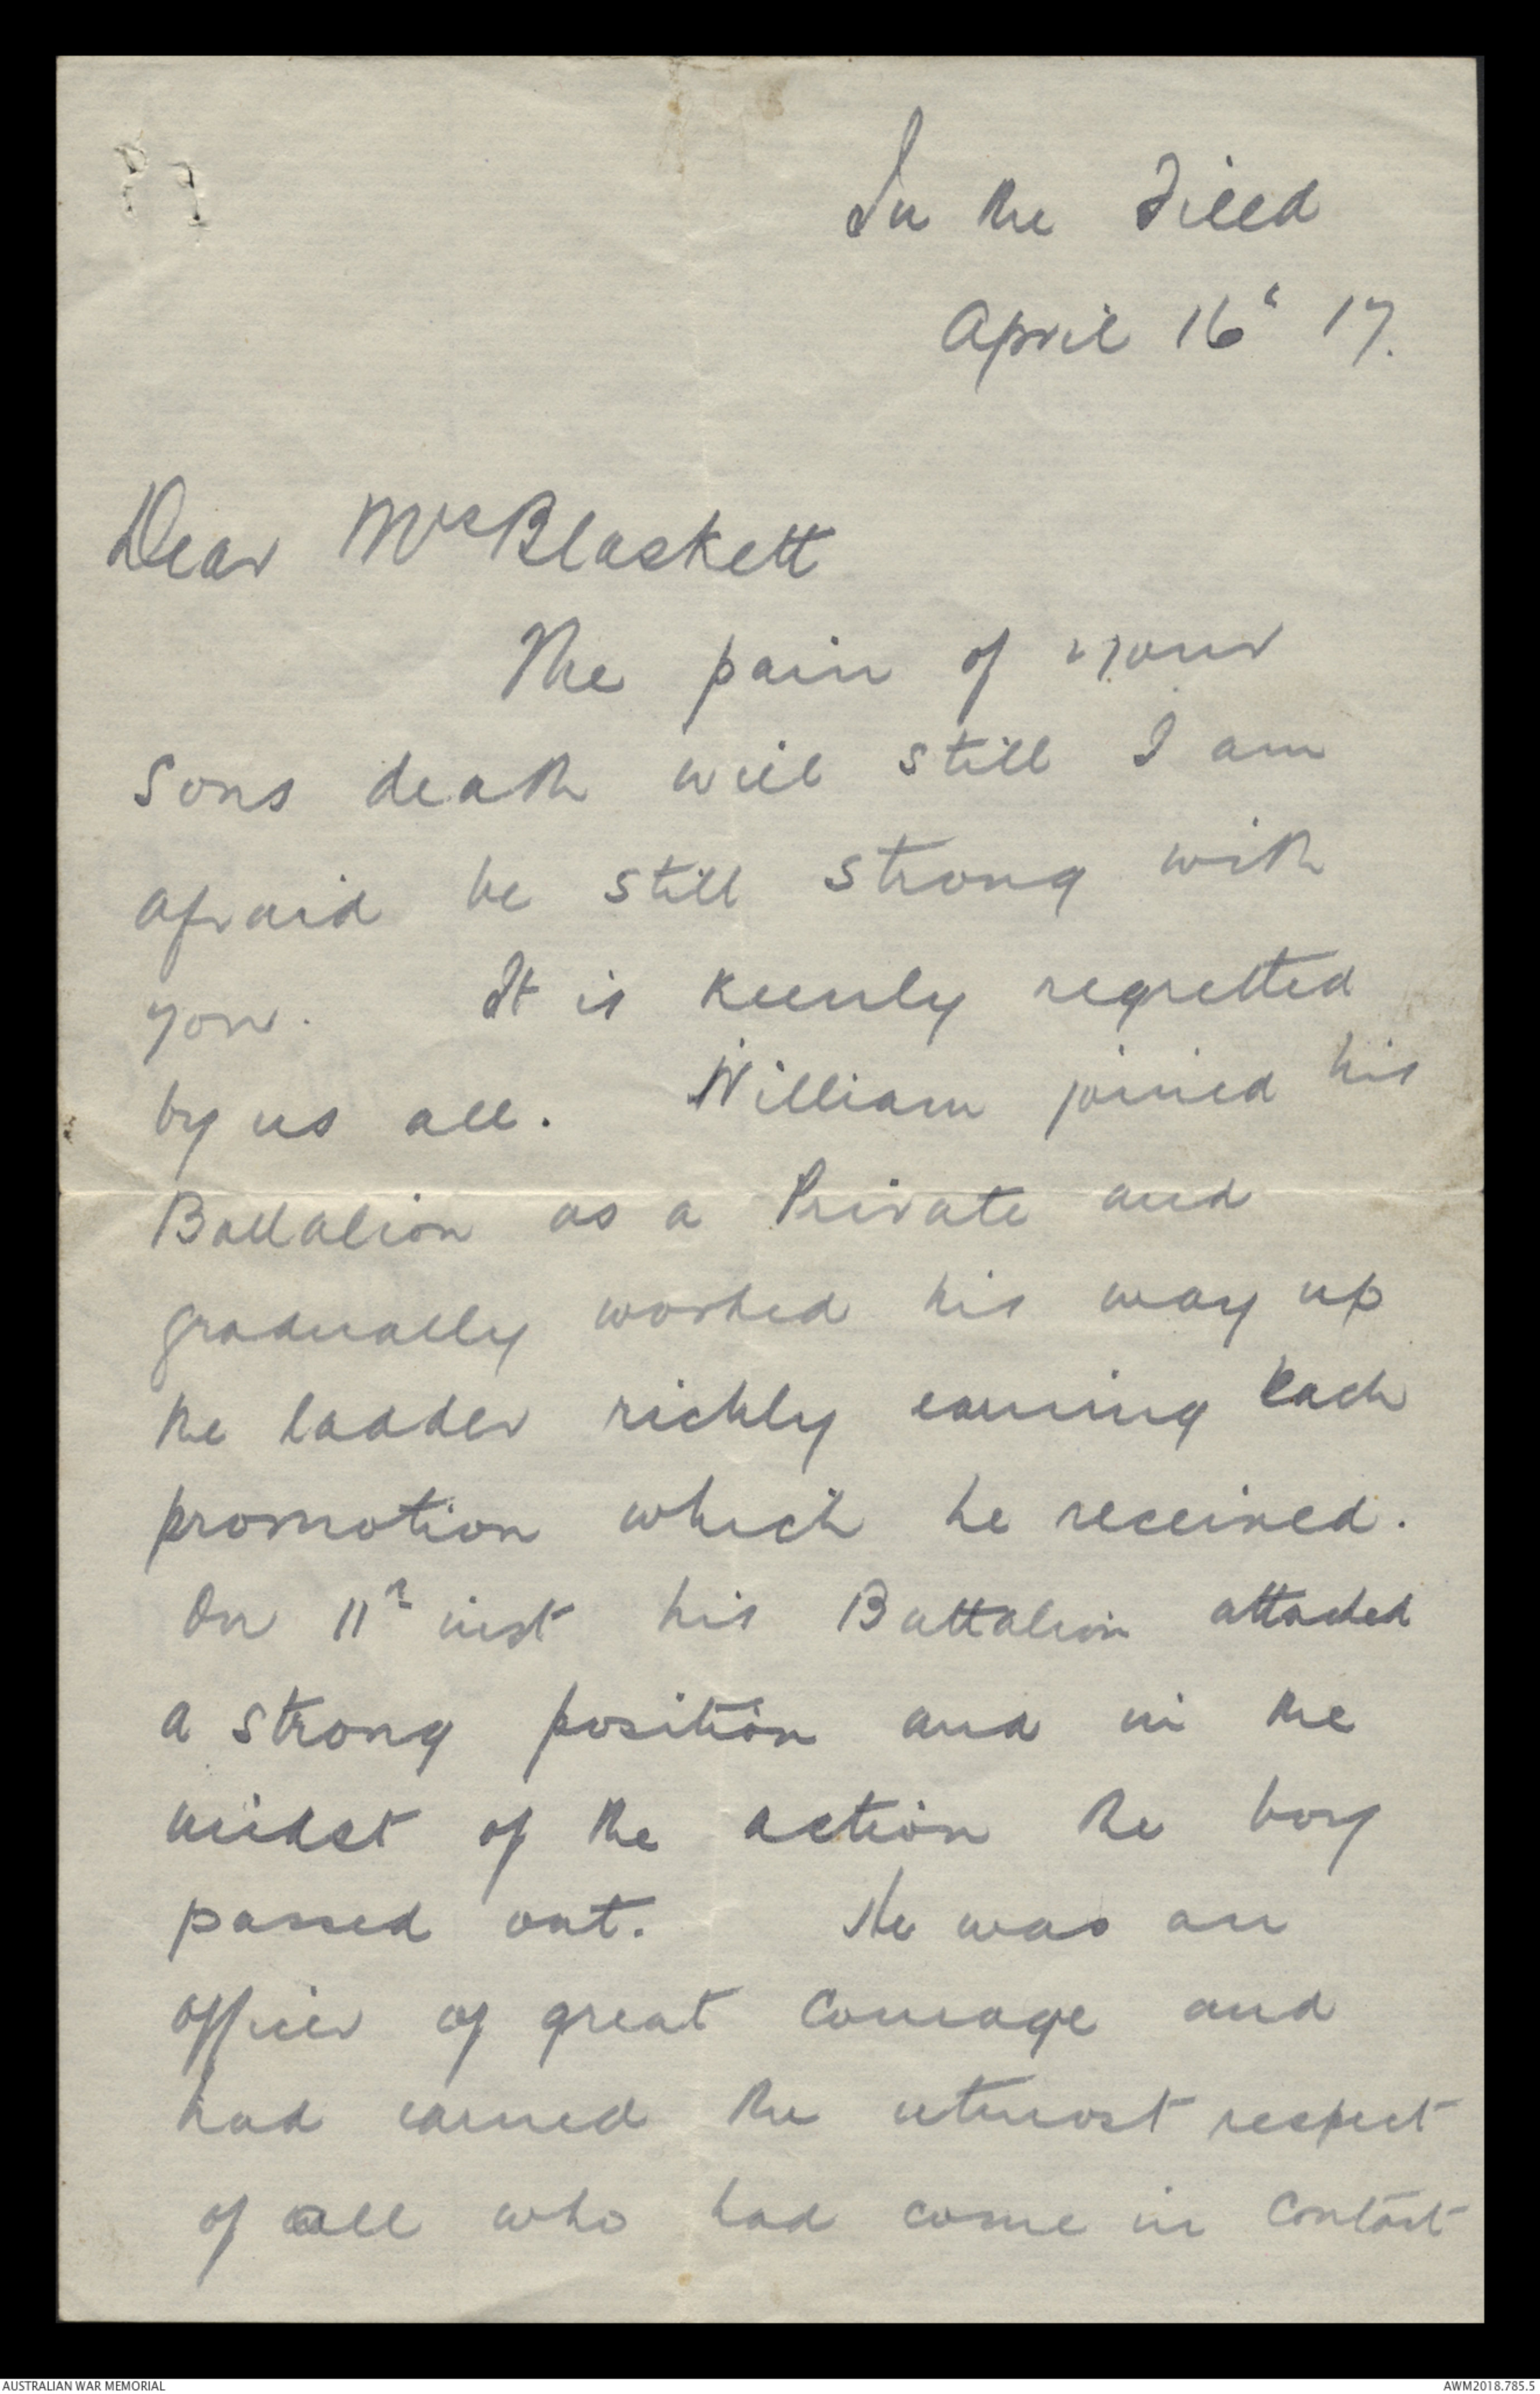 In the Field
April 16th 17.
Dear Mrs Blaskett
The pain of your
sons death will still I am
afraid be still strong with
you. It is keenly regretted
by us all. William joined his
Battalion as a Private and
gradually worked his way up
the ladder richly earning each
promotion which he received.
On 11th inst his Battalion attacked
a strong position and in the
midst of the action the boy
passed out. He was an
officer of great courage and
had earned the utmost respect
of all who had come in contact
AUSTRALIAN WAR MEMORIAL
AWM2018.785.5